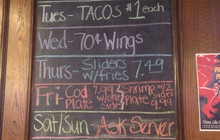 Tues- TACOS $1 each
Wed- 70¢ Wings
Thurs- Sliders w/Fries 7.49
Fri Cod Plate 7.99 w/one side Shrimp Plate 9.99
Sat/Sun- Ask Server